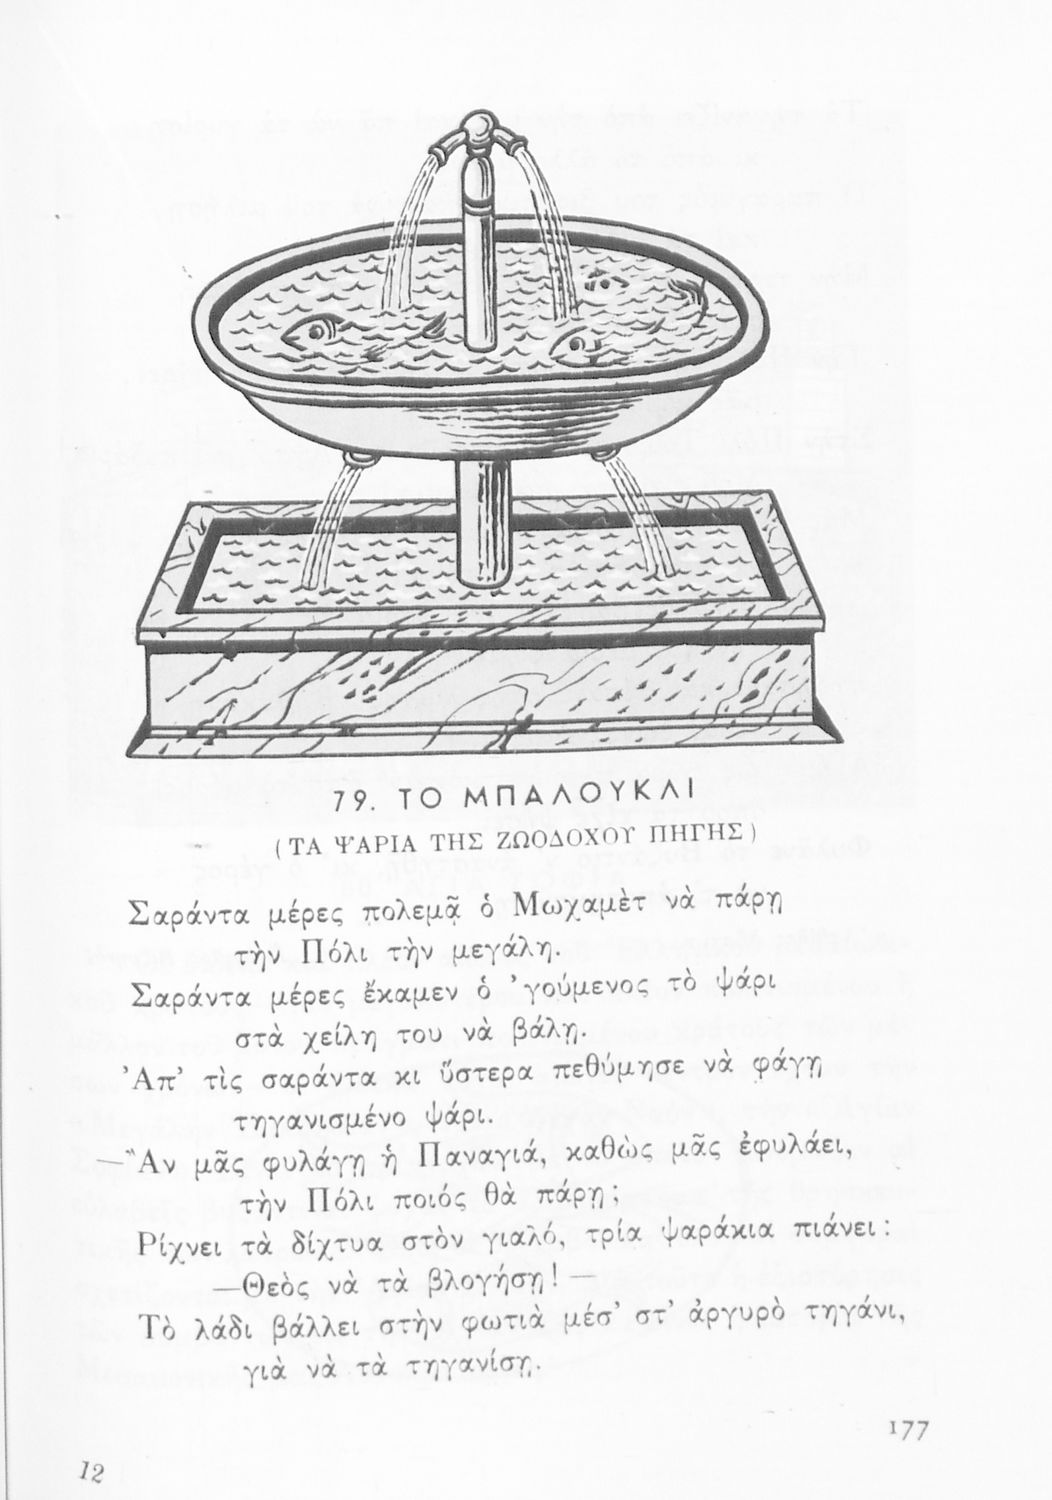 79. ΤΟ ΜΠΑΛΟΥΚΛΙ
(ΤΑ ΨΑΡΙΑ ΤΗΣ ΖΩΟΔΟΧΟΥ ΠΗΓΗΣ)
Σαράντα μέρες πολεμᾷ ὁ Μωχαμὲτ νὰ πάρῃ
τὴν Πόλι τὴν μεγάλη.
Σαράντα μέρες ἔκαμεν ὁ ᾽γούμενος τὸ ψάρι
στὰ χείλη του νὰ βάλῃ.
᾽Απ᾽ τὶς σαράντα κι ὕστερα πεθύμησε νὰ φάγῃ
τηγανισμένο ψάρι.
—῎Αν μᾶς φυλάγῃ ἡ Παναγιά, καθὼς μᾶς ἐφυλάει,
τὴν Πόλι ποιός θὰ πάρῃ;
Ρίχνει τὰ δίχτυα στὸν γιαλό, τρία ψαράκια πιάνει:
—Θεὸς νὰ τὰ βλογήσῃ! —
Τὸ λάδι βάλλει στὴν φωτιὰ μέσ᾽ στ᾽ ἀργυρὸ τηγάνι,
γιὰ νὰ τὰ τηγανίσῃ.
177
12